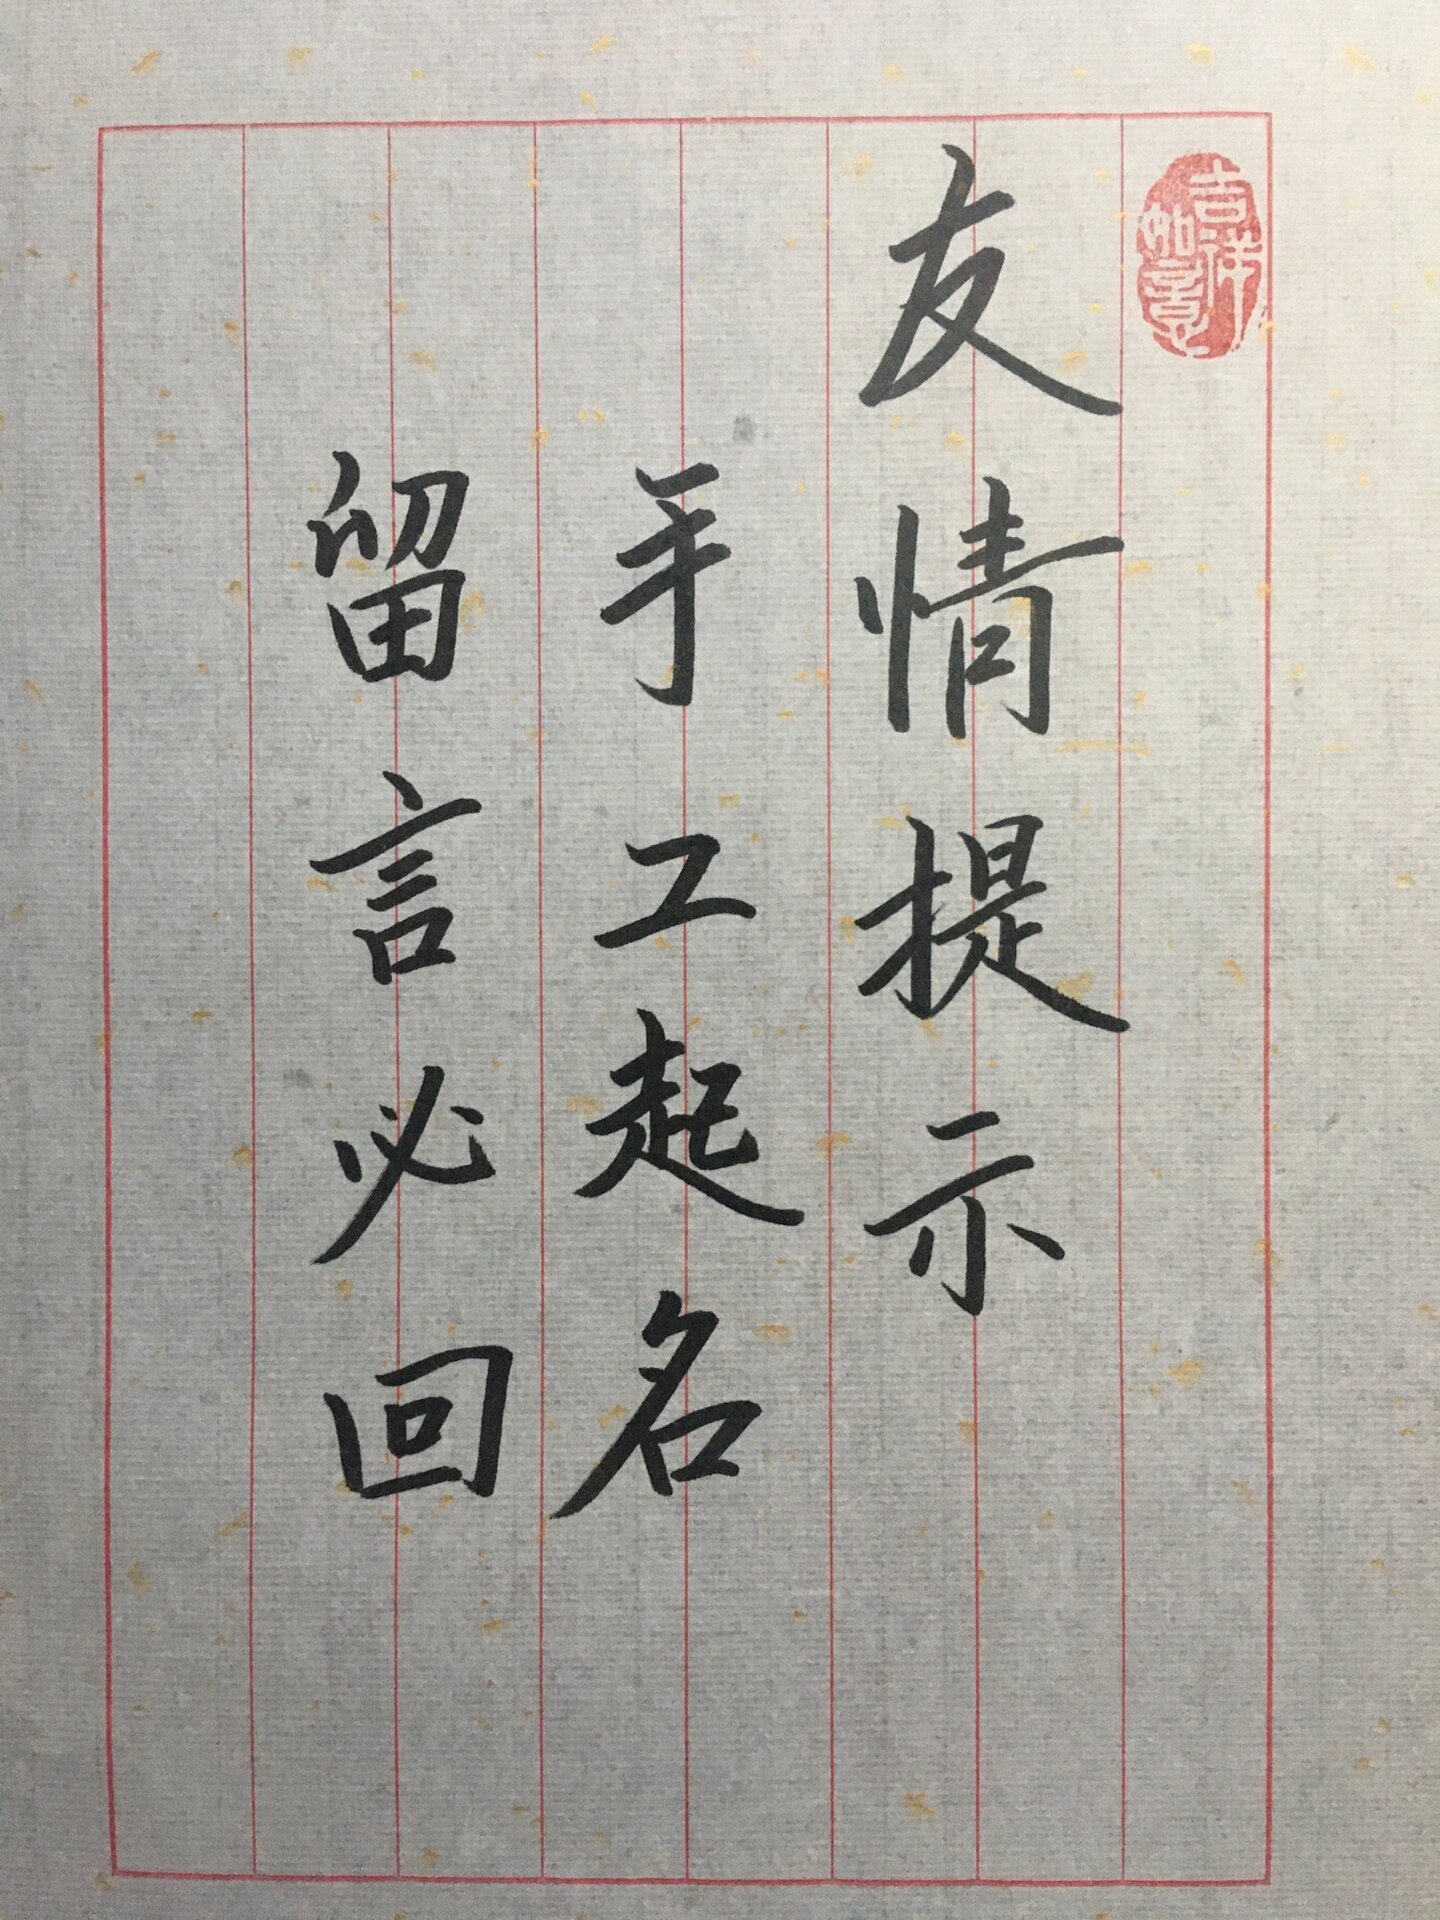 吉祥如意
友情提示
手工起名
留言必回